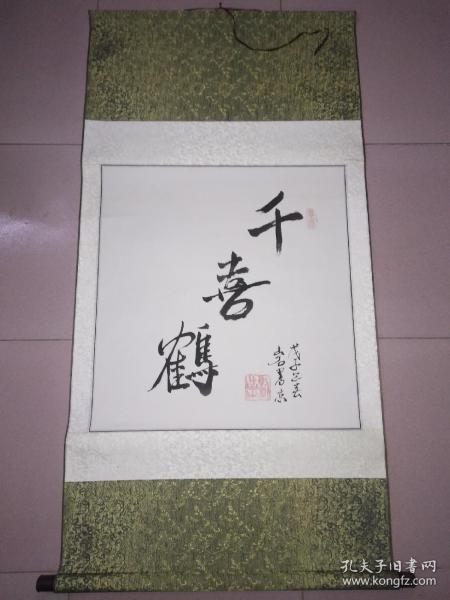 千喜鶴
戊子之春
书京
孔夫子旧书网
www.kongfz.com